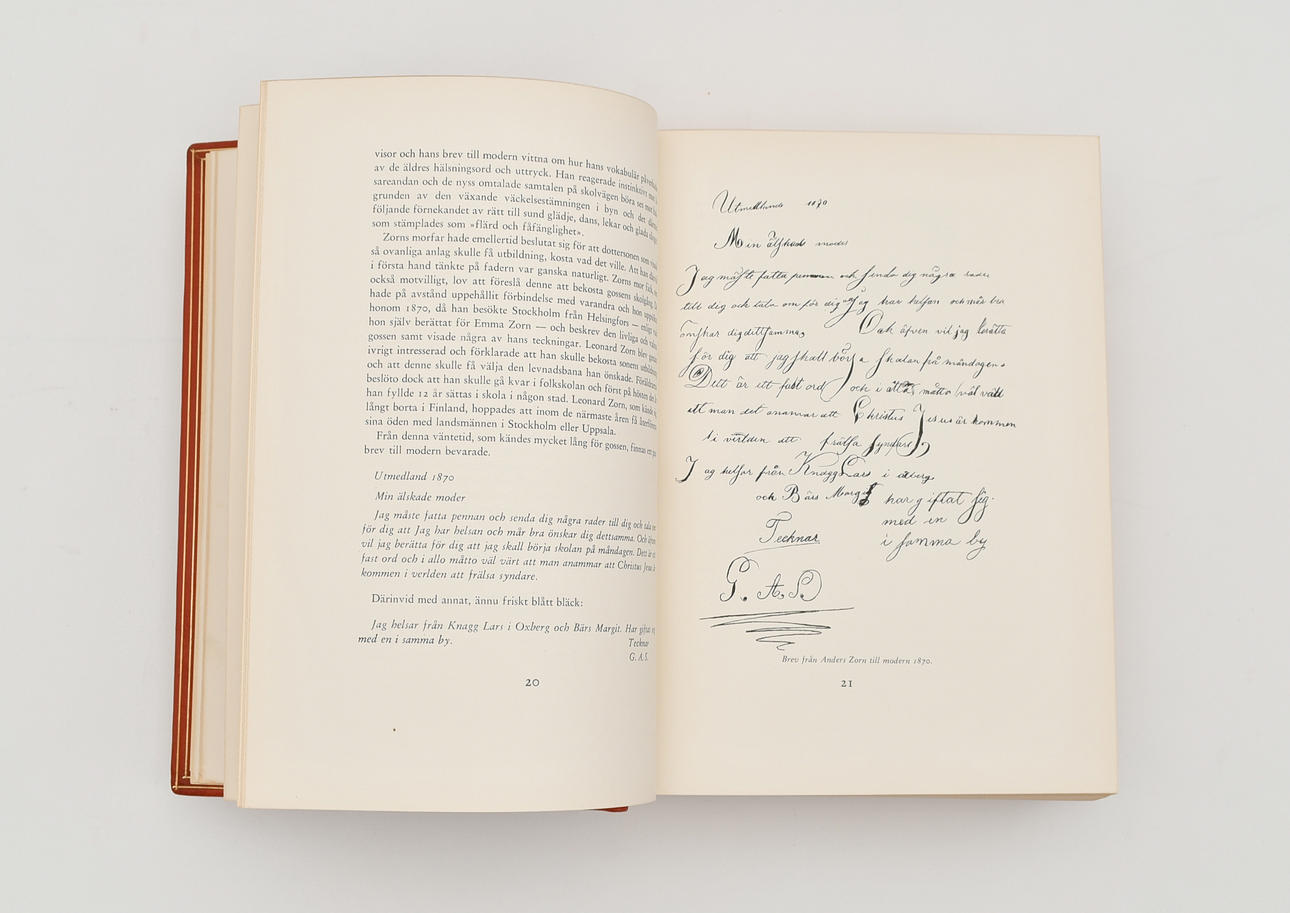 visor och hans brev till modern vittna om hur hans vokabulär
av de äldres hälsningsord och uttryck. Han reagerade instinktivt
sareandan och de nyss omtalade samtalen på skolvägen böra ses mot
grunden av den växande väckelsestämningen i byn och det
följande förnekandet av rätt till sund glädje, dans, lekar och glada
som stämplades som »flärd och fåfänglighet».
Zorns morfar hade emellertid beslutat sig för att dottersonen som
så ovanliga anlag skulle få utbildning, kosta vad det ville. Att han
i första hand tänkte på fadern var ganska naturligt. Zorns mor fick,
också motvilligt, lov att föreslå denne att bekosta gossens skolgång.
hade på avstånd uppehållit förbindelse med varandra och hon
honom 1870, då han besökte Stockholm från Helsingfors — enligt
hon själv berättat för Emma Zorn — och beskrev den livliga och
gossen samt visade några av hans teckningar. Leonard Zorn blev
ivrigt intresserad och förklarade att han skulle bekosta sonens
och att denne skulle få välja den levnadsbana han önskade. Föräldrarna
beslöto dock att han skulle gå kvar i folkskolan och först på hösten det
han fyllde 12 år sättas i skola i någon stad. Leonard Zorn, som kände sig
långt borta i Finland, hoppades att inom de närmaste åren få
sina öden med landsmännen i Stockholm eller Uppsala.
Från denna väntetid, som kändes mycket lång för gossen, finnas ett
brev till modern bevarade.
Utmedland 1870
Min älskade moder
Jag måste fatta pennan och senda dig några rader till dig och tala
för dig att Jag har helsan och mår bra önskar dig dettsamma. Och
vil jag berätta för dig att jag skall börja skolan på måndagen. Dett är
fast ord och i allo måtto väl värt att man anammar att Christus Jesus
kommen i verlden att frälsa syndare.
Därinvid med annat, ännu friskt blått bläck:
Jag helsar från Knagg Lars i Oxberg och Bärs Margit. Har giftat
med en i samma by.
Tecknar
G. A. S.
20
Utmedland 1870
Min älskade moder
Jag måste fatta och senda dig några rader
till dig och tala om för dig att Jag har helsan och mår bra
önskar dig dettsamma. Och äfven vil jag berätta
för dig att jag skall börja skolan på måndagen.
Dett är ett fast ord och i måtto väl värt
att man det anammar att Christus Jesus är kommen
i verlden att frälsa syndare,
Jag helsar från Knagg Lars i
och Bärs Margit har giftat sig
med en
Tecknar
i samma by
G. A. S.
Brev från Anders Zorn till modern 1870.
21